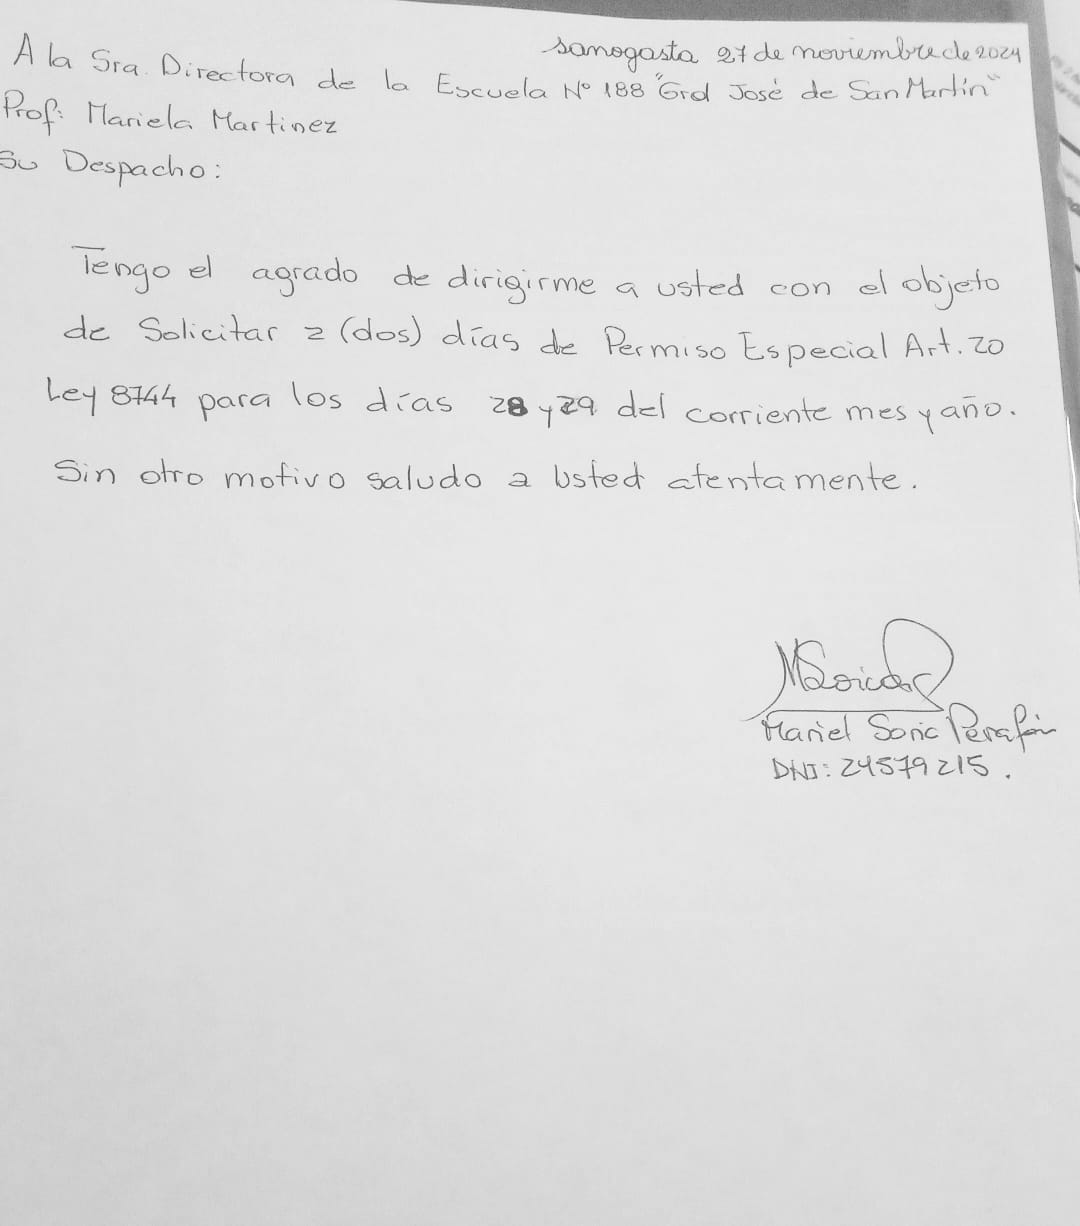 sanogasta 27 de noviembre de 2024
A la Sra. Directora de la Escuela N° 188 "Grd José de San Martín"
Prof: Mariela Martinez
Su Despacho:
Tengo el agrado de dirigirme a usted con el objeto
de Solicitar 2 (dos) días de Permiso Especial Art. 20
Ley 8744 para los días 28 y 29 del corriente mes y año.
Sin otro motivo saludo a Usted atentamente.
Mariel Soric Perafán
DNI: 24579215.